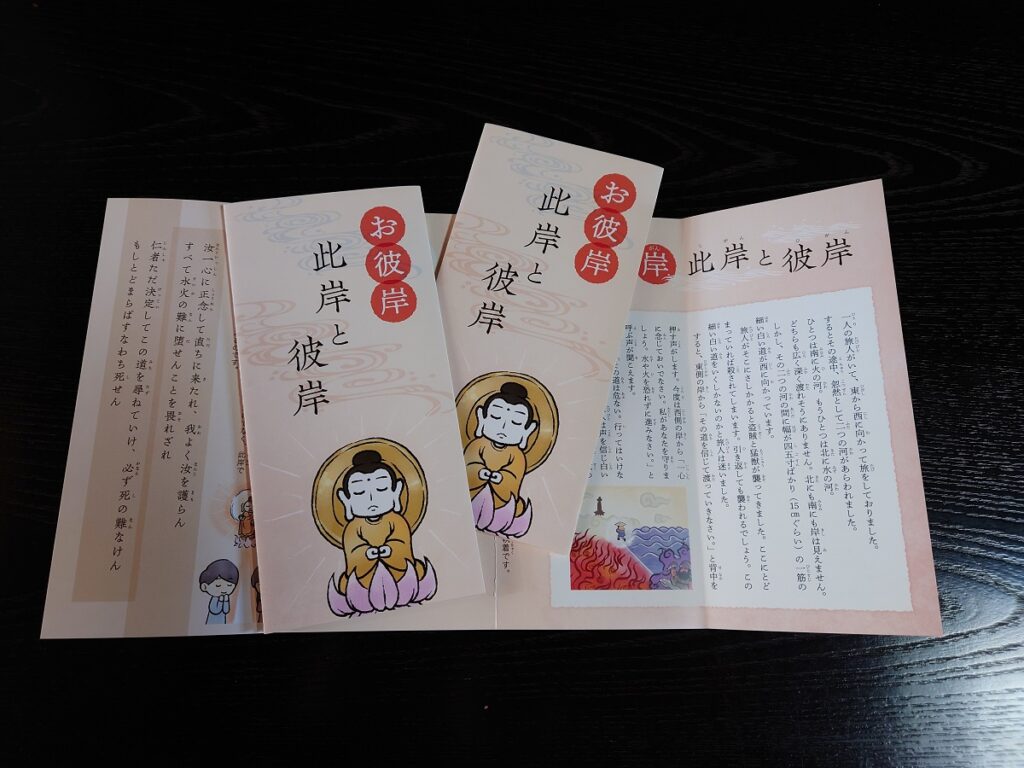 お彼岸
此岸と
彼岸
お彼岸
此岸と
彼岸
岸 此岸と彼岸
一人の旅人がいて、東から西に向かって旅をしておりました。
するとその途中、忽然として二つの河があらわれました。
ひとつは南に火の河。もうひとつは北に水の河。
どちらも広く深く渡れそうにありません。北にも南にも岸は見えません。
しかし、その二つの河の間に幅が四五寸ばかり(15㎝ぐらい)の一筋の
細い白い道が西に向かっています。
旅人がそこにさしかかると盗賊と猛獣が襲ってきました。ここにとど
まっていれば殺されてしまいます。引き返しても襲われるでしょう。この
細い白い道をいくしかないのかと旅人は迷いました。
すると、東側の岸から「その道を信じて渡っていきなさい。」と背中を
押す声がします。今度は西側の岸から「一心
に念じておいでなさい。私があなたを守りま
しょう。水や火を恐れずに進みなさい。」と
呼ぶ声が聞こえます。
この道は危ない。行ってはいけな
人は声を信じ白い
着です。
此岸で
汝一心に正念して直ちに来たれ、我よく汝を護らん
すべて水火の難に堕せんことを畏れざれ
仁者ただ決定してこの道を尋ねていけ、必ず死の難なけん
もしとどまらばすなわち死せん